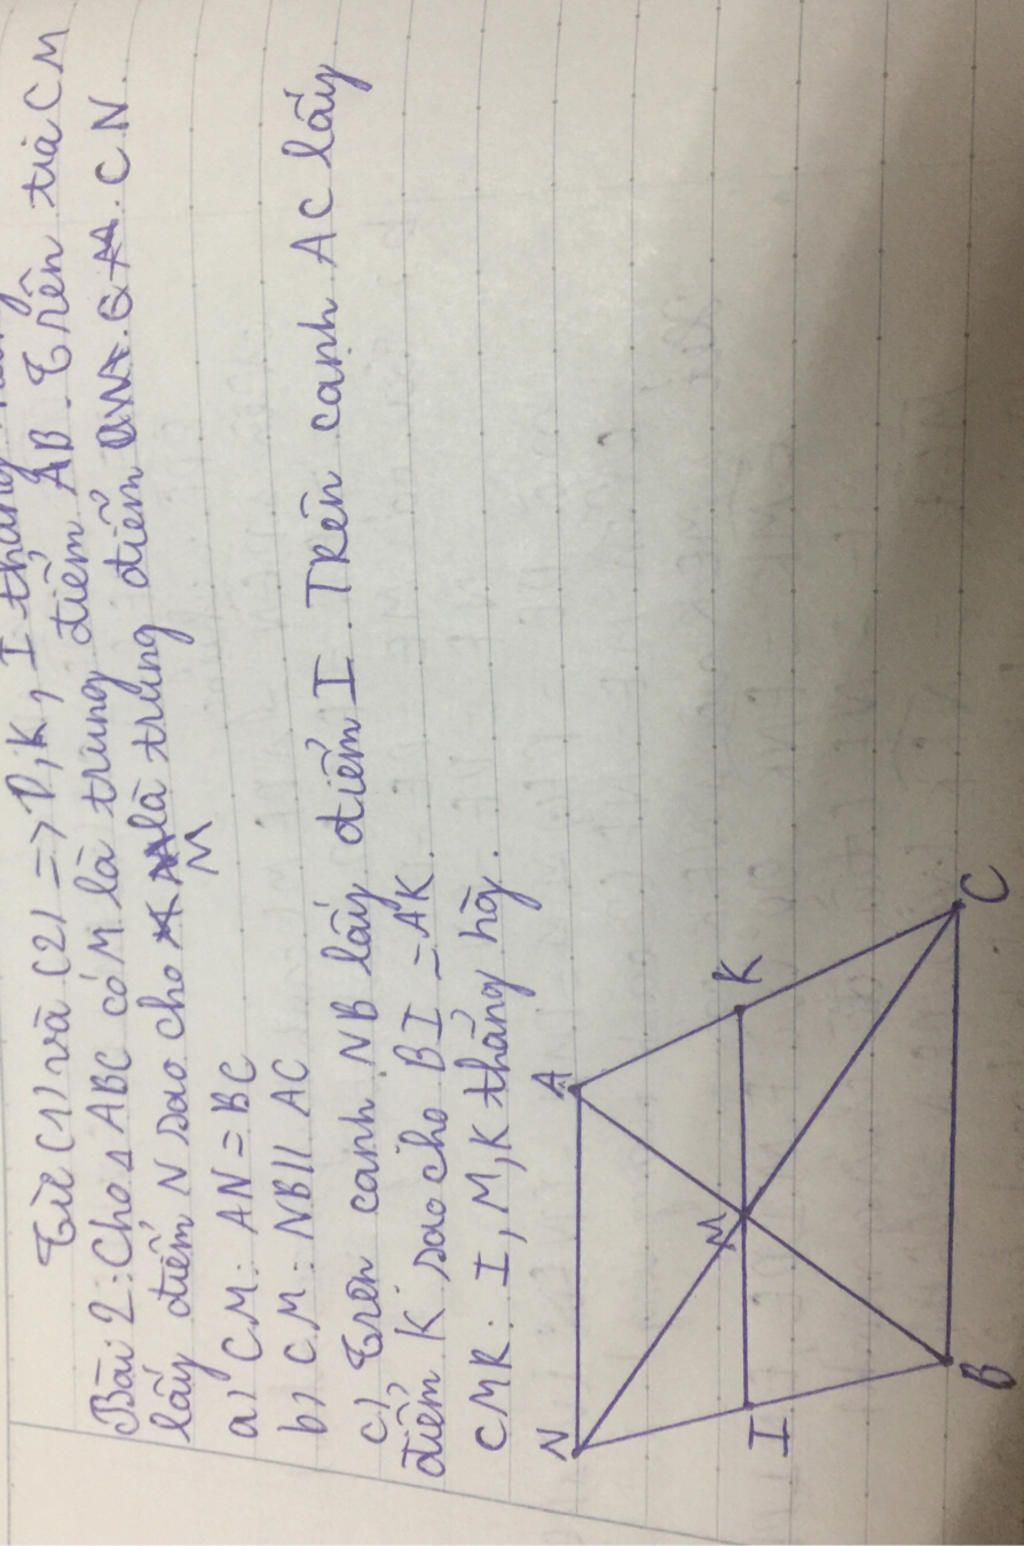 Từ (1) và (2) => D, K, I thẳng
Bài 2: Cho △ ABC có M là trung điểm AB. Trên tia CM
lấy điểm N sao cho M là trung điểm CN.
a) CM: AN = BC
b) CM: NB // AC
c) Trên cạnh NB lấy điểm I. Trên cạnh AC lấy
điểm K sao cho BI = AK.
CMR: I, M, K thẳng hàg.
N
A
M
K
I
B
C